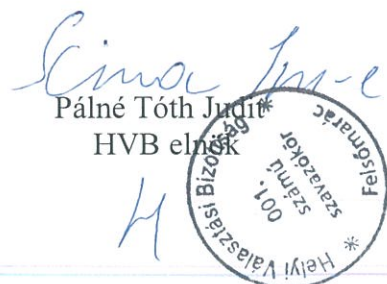 Pálné Tóth Judit
HVB elnök
* Helyi Választási Bizottság *
Felsőmarác
001.
számú
szavazókör